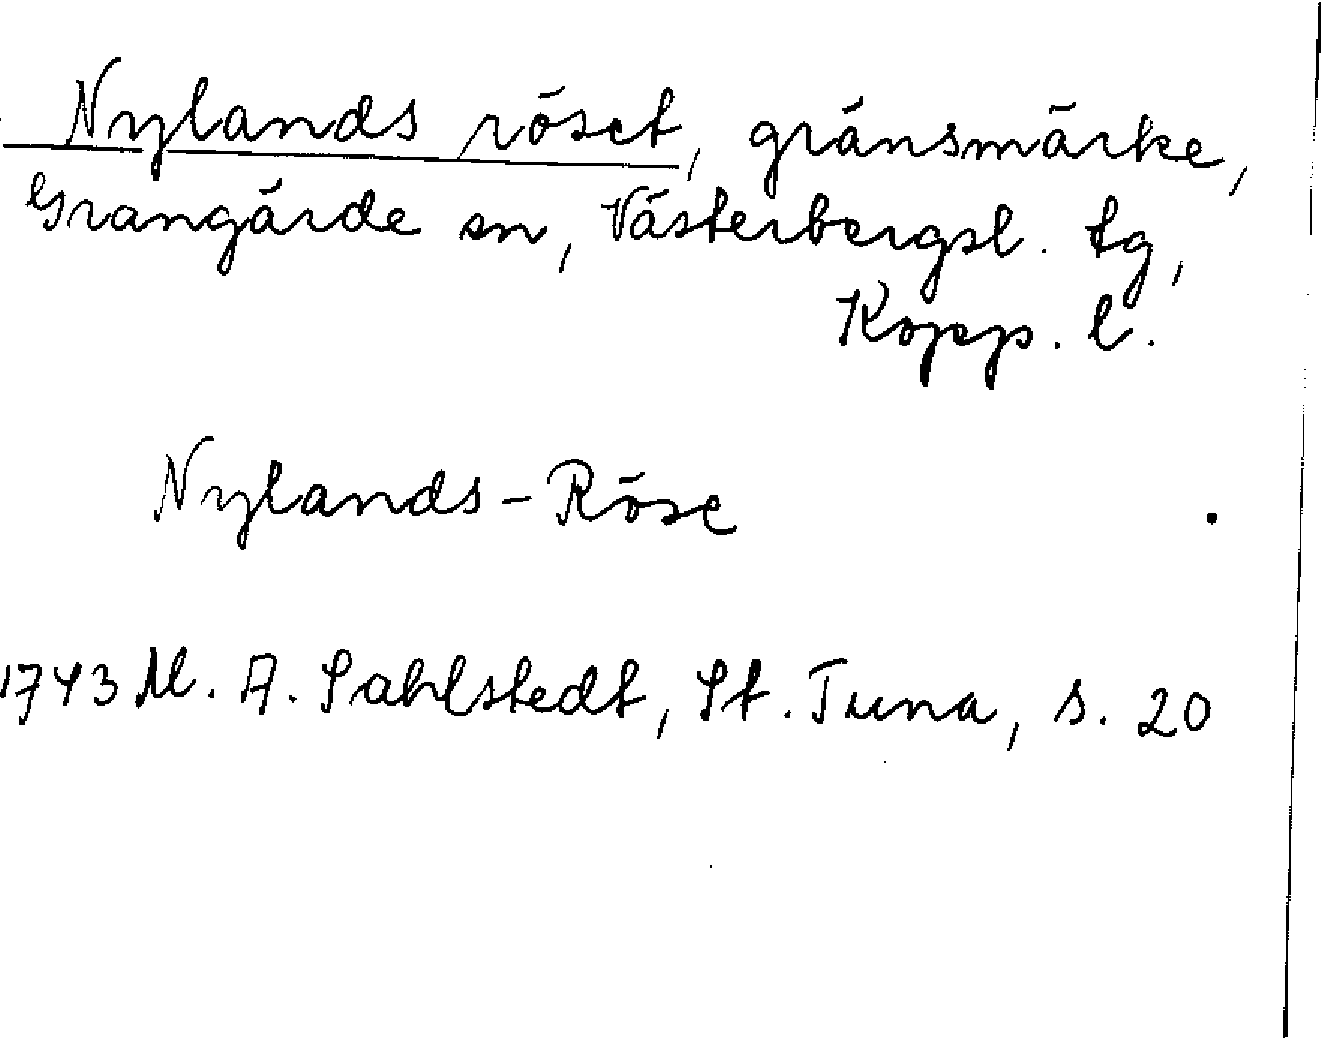 Nylands röset, gränsmärke,
Grangärde sn, Västerbergsl. tg,
Kopp. l.
Nylands-Röse
1743 M. A. Sahlstedt, St. Tuna, s. 20